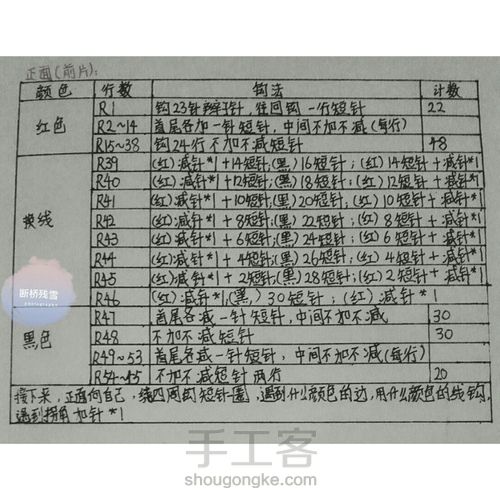 正面(前片):
颜色 行数 钩法 计数
红色 R1 钩23针辫子针，往回钩一行短针 22
R2~14 首尾各加一针短针，中间不加不减(每行)
R15~38 钩24行不加不减短针 48
换线 R39 (红)减针*1+14短针;(黑)16短针;(红)14短针+减针*1
R40 (红)减针*1+12短针;(黑)18短针;(红)12短针+减针*1
R41 (红)减针*1+10短针;(黑)20短针;(红)10短针+减针*1
R42 (红)减针*1+8短针;(黑)22短针;(红)8短针+减针*1
R43 (红)减针*1+6短针;(黑)24短针;(红)6短针+减针*1
R44 (红)减针*1+4短针;(黑)26短针;(红)4短针+减针*1
R45 (红)减针*1+2短针;(黑)28短针;(红)2短针+减针*1
R46 (红)减针*1,(黑)30短针;(红)减针*1
黑色 R47 首尾各减一针短针，中间不加不减 30
R48 不加不减短针 30
R49~53 首尾各减一针短针，中间不加不减(每行)
不加不减短针两行 20
接下来，正面向自己，绕四周钩短针一圈，遇到什么颜色的边，用什么颜色的线钩，
遇到拐角加针*1
断桥残雪
手工客
shougongke.com